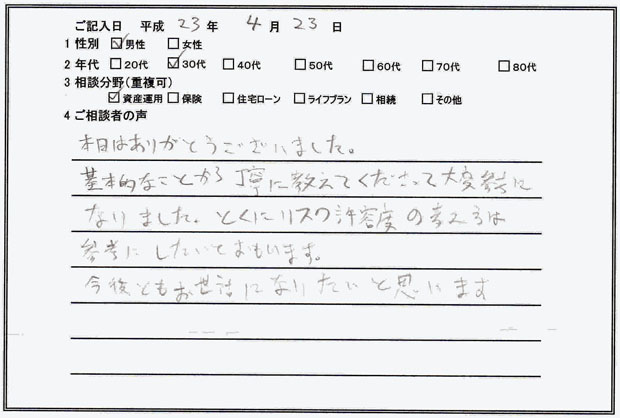 ご記入日 平成 23 年 4 月 23 日
1 性別 ☑男性 □女性
2 年代 □20代 ☑30代 □40代 □50代 □60代 □70代 □80代
3 相談分野(重複可)
☑資産運用 □保険 □住宅ローン □ライフプラン □相続 □その他
4 ご相談者の声
本日はありがとうございました。
基本的なことから丁寧に教えてくださって大変参考に
なりました。とくにリスク許容度の考え方は
参考にしたいとおもいます。
今後ともお世話になりたいと思います